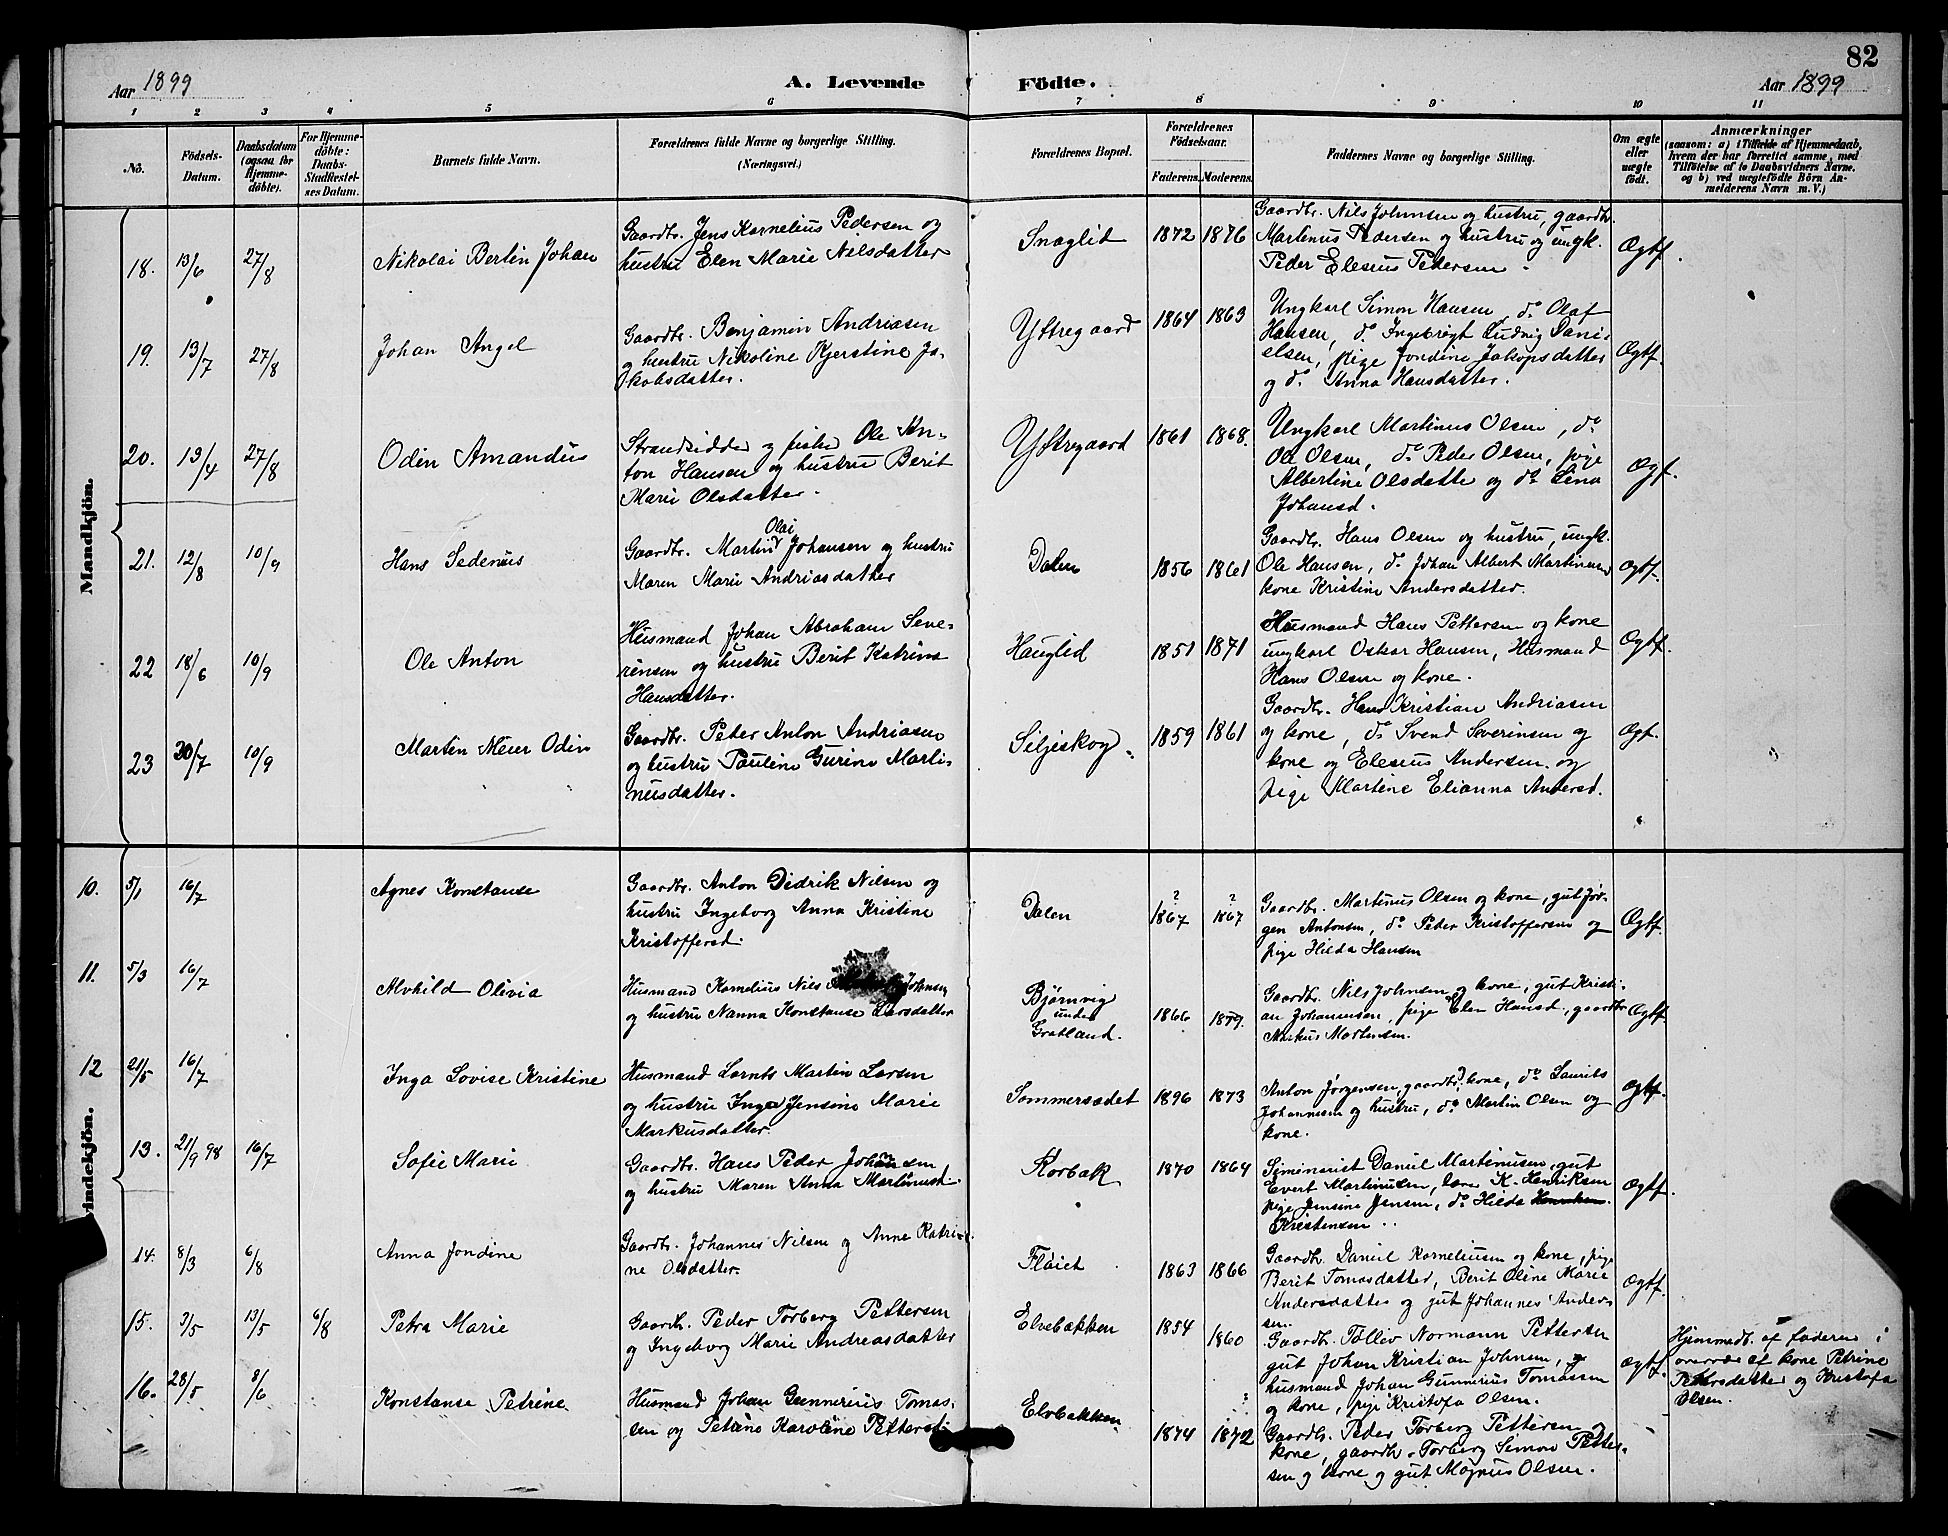 82
Aar 1899
A. Levende Födte.
Aar 1899
1 2 3 4 5 6 7 8 9 10 11
No.
Födsels-Datum.
Daabsdatum (ogsaa for Hjemme-döbte).
For Hjemme-döbte: Daabs-Stadfæstel-ses Datum.
Barnets fulde Navn.
Forældrenes fulde Navne og borgerlige Stilling.
(Næringsvei.)
Forældrenes Bopæl.
Forældrenes Födselsaar.
Faderens. Moderens.
Faddernes Navne og borgerlige Stilling.
Om ægte eller uægte födt.
Anmærkninger
(saasom: a) i Tilfælde af Hjemmedaab,
hvem der har forrettet samme, med
Tilföielse af to Daabsvidners Navne,
og b) ved uægtefödte Börn An-
melderens Navn m. V.)
Mandkjön.
18. 13/6 27/8 Nikolai Bertin Johan
Gaardbr. Jens Kornelius Pedersen og
hustru Elen Marie Nilsdatter
Snæglid 1872 1876
Gaardbr. Nils Johnsen og hustru, gaardbr.
Martinus Pedersen og hustru og ungk.
Peder Elesius Pedersen.
Ægtf.
19. 13/7 27/8 Johan Angel
Gaardbr. Benjamin Andriasen
og hustru Nikoline Kjerstine Ja-
kobsdatter.
Yttregaard 1864 1863
Ungkarl Simon Hansen, do Olaf
Hansen, do Ingebrigt Ludvig Dani-
elsen, pige Jondine Jakopsdatter
og do Anna Hansdatter.
Ægtf.
20. 13/4 27/8 Odin Amandus
Strandsidder og fisker Ole An-
ton Hansen og hustru Berit
Marie Olsdatter.
Yttregaard 1861 1868.
Ungkarl Martinus Olsen, do
Ole Olsen, do Peder Olsen, pige
Albertine Olsdatte og do Lina
Johansd.
Ægf.
21. 12/8 10/9 Hans Sedenius
Olai
Gaardbr. Martin Johansen og hustru
Maren Marie Andriasdatter
Dalen 1856 1861
Gaardbr. Hans Olsen og hustru, ungk.
Ole Hansen, do Johan Albert Martinsen
kone Kristine Andersdatter.
Ægtf.
22 18/6 10/9 Ole Anton
Husmand Johan Abraham Seve-
rinsen og hustru Berit Katrine
Hansdatter.
Hauglid 1851 1871
Husmand Hans Pettersen og kone
ungkarl Oskar Hansen, Husmand
Hans Olsen og kone.
Ægtf.
23 30/7 10/9 Martin Meier Odin
Gaardbr. Peter Anton Andriasen
og hustru Pauline Gurine Marti-
nusdatter.
Seljeskog 1859 1861
Gaardbr. Hans Kristian Andriasen
og kone, do Svend Severinsen og
kone og Elesius Andersen og
pige Martine Elianna Andersd.
Ægt.
Kvindekjön.
10. 5/1 16/7 Agnes Konstanse
Gaardbr. Anton Didrik Nilsen og
hustru Ingeborg Anna Kristine
Kristoffersd.
Dalen ? 1867 ? 1867
Gaardbr. Martinus Olsen og kone, gut Jør-
gen Antonsen, do Peder Kristoffersen og
pige Hilda Hansen
Ægtf.
11. 5/3 16/7 Alvhild Olivia
Husmand Kornelius Nils Johnsen
og hustru Nanna Konstanse Larsdatter
Bjørnvig
under
Grotland.
1866 1879.
Gaardbr. Nils Johnsen og kone, gut Kristi-
an Johannsen, pige Elen Hansd., gaardbr.
Markus Mortensen.
Ægtf.
12 21/5 16/7 Inga Lovise Kristine
Husmand Lornts Martin Larsen
og hustru Inga Jensine Marie
Markusdatter.
Sommersædet 1896 1873
Anton Jørgensen, gaardbr., kone, do Laurits
Johannesen og hustru, do Martin Olsen og
kone.
Ægtf.
13. 21/9 98 16/7 Sofie Marie
Gaardbr. Hans Peder Johansen
og hustru Maren Anna Martinusd.
Korbak 1870 1864
Siminarist Daniel Martinusen, gut
Evert Martinusen, lære K. Henriksen
pige Jensine Jensen, do Hilda
Kristensen
Ægtf.
14. 8/3 6/8 Anna Jondine
Gaardbr. Johannes Nilsen og Anne Katri-
ne Olsdatter.
Fløiet 1863 1866
Gaardbr. Daniel Korneliusen og kone, pige
Berit Tomasdatter, Berit Oline Marie
Andersdatter og gut Johannes Ander-
sen.
Ægtf.
15. 3/5 13/5 6/8 Petra Marie
Gaardb. Peder Torberg Pettersen
og Ingeborg Marie Andreasdatter
Elvebakken 1854 1860
Gaardbr. Tølliv Normann Pettersen
gut Johan Kristian Johnsen,
husmand Johan Gunnerius Tomassen
og kone, pige Kristofa Olsen.
Ægtf.
Hjemmedb. af faderen i
overvær af kone Petrine
Pettersdatter og Kristofa
Olsen.
16. 28/5 8/6 Konstanse Petrine
Husmand Johan Gunnerius Tomas-
sen og Petrine Karoline Pettersd.
Elvbakken 1874 1872
Gaardb. Peder Torberg Pettersen og
kone, gaardb. Torberg Simon Petter-
sen og kone og gut Magnus Olsen.